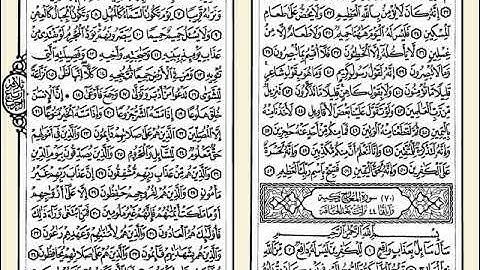 إِنَّهُ كَانَ لَا يُؤْمِنُ بِاللَّهِ الْعَظِيمِ ٣٣ وَلَا يَحُضُّ عَلَى طَعَامِ
الْمِسْكِينِ ٣٤ فَلَيْسَ لَهُ الْيَوْمَ هَهُنَا حَمِيمٌ ٣٥ وَلَا طَعَامٌ إِلَّا مِنْ
غِسْلِينٍ ٣٦ لَا يَأْكُلُهُ إِلَّا الْخَاطِئُونَ ٣٧ فَلَا أُقْسِمُ بِمَا تُبْصِرُونَ ٣٨
وَمَا لَا تُبْصِرُونَ ٣٩ إِنَّهُ لَقَوْلُ رَسُولٍ كَرِيمٍ ٤٠ وَمَا هُوَ بِقَوْلِ شَاعِرٍ
قَلِيلًا مَا تُؤْمِنُونَ ٤١ وَلَا بِقَوْلِ كَاهِنٍ قَلِيلًا مَا تَذَكَّرُونَ ٤٢ تَنْزِيلٌ
مِنْ رَبِّ الْعَالَمِينَ ٤٣ وَلَوْ تَقَوَّلَ عَلَيْنَا بَعْضَ الْأَقَاوِيلِ ٤٤ لَأَخَذْنَا مِنْهُ
بِالْيَمِينِ ٤٥ ثُمَّ لَقَطَعْنَا مِنْهُ الْوَتِينَ ٤٦ فَمَا مِنْكُمْ مِنْ أَحَدٍ عَنْهُ
حَاجِزِينَ ٤٧ وَإِنَّهُ لَتَذْكِرَةٌ لِلْمُتَّقِينَ ٤٨ وَإِنَّا لَنَعْلَمُ أَنَّ مِنْكُمْ مُكَذِّبِينَ ٤٩ وَإِنَّهُ لَحَسْرَةٌ
عَلَى الْكَافِرِينَ ٥٠ وَإِنَّهُ لَحَقُّ الْيَقِينِ ٥١ فَسَبِّحْ بِاسْمِ رَبِّكَ الْعَظِيمِ ٥٢
(٧٠) سورة المعارج مكية
وآياتها ٤٤ نزلت بعد الحاقة
بِسْمِ اللَّهِ الرَّحْمَنِ الرَّحِيمِ
سَأَلَ سَائِلٌ بِعَذَابٍ وَاقِعٍ ١ لِلْكَافِرِينَ لَيْسَ لَهُ دَافِعٌ ٢ مِنَ اللَّهِ
وَنَرَاهُ قَرِيبًا ٧ يَوْمَ تَكُونُ السَّمَاءُ كَالْمُهْلِ ٨ وَتَكُونُ الْجِبَالُ كَالْعِهْنِ ٩
وَلَا يَسْأَلُ حَمِيمٌ حَمِيمًا ١٠ يُبَصَّرُونَهُمْ يَوَدُّ الْمُجْرِمُ لَوْ يَفْتَدِي مِنْ
عَذَابِ يَوْمِئِذٍ بِبَنِيهِ ١١ وَصَاحِبَتِهِ وَأَخِيهِ ١٢ وَفَصِيلَتِهِ الَّتِي
تُؤْوِيهِ ١٣ وَمَنْ فِي الْأَرْضِ جَمِيعًا ثُمَّ يُنْجِيهِ ١٤ كَلَّا إِنَّهَا لَظَى ١٥ نَزَّاعَةً
لِلشَّوَى ١٦ تَدْعُو مَنْ أَدْبَرَ وَتَوَلَّى ١٧ وَجَمَعَ فَأَوْعَى ١٨ إِنَّ الْإِنْسَانَ
خُلِقَ هَلُوعًا ١٩ إِذَا مَسَّهُ الشَّرُّ جَزُوعًا ٢٠ وَإِذَا مَسَّهُ الْخَيْرُ مَنُوعًا ٢١
إِلَّا الْمُصَلِّينَ ٢٢ الَّذِينَ هُمْ عَلَى صَلَاتِهِمْ دَائِمُونَ ٢٣ وَالَّذِينَ فِي أَمْوَالِهِمْ
حَقٌّ مَعْلُومٌ ٢٤ لِلسَّائِلِ وَالْمَحْرُومِ ٢٥ وَالَّذِينَ يُصَدِّقُونَ بِيَوْمِ الدِّينِ ٢٦
وَالَّذِينَ هُمْ مِنْ عَذَابِ رَبِّهِمْ مُشْفِقُونَ ٢٧ إِنَّ عَذَابَ رَبِّهِمْ غَيْرُ
مَأْمُونٍ ٢٨ وَالَّذِينَ هُمْ لِفُرُوجِهِمْ حَافِظُونَ ٢٩ إِلَّا عَلَى أَزْوَاجِهِمْ
أَوْ مَا مَلَكَتْ أَيْمَانُهُمْ فَإِنَّهُمْ غَيْرُ مَلُومِينَ ٣٠ فَمَنِ ابْتَغَى وَرَاءَ
ذَلِكَ فَأُولَئِكَ هُمُ الْعَادُونَ ٣١ وَالَّذِينَ هُمْ لِأَمَانَاتِهِمْ وَعَهْدِهِمْ رَاعُونَ ٣٢
وَالَّذِينَ هُمْ بِشَهَادَاتِهِمْ قَائِمُونَ ٣٣ وَالَّذِينَ هُمْ عَلَى صَلَاتِهِمْ يُحَافِظُونَ ٣٤